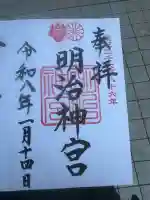 奉拝
明治神宮
令和八年一月十四日